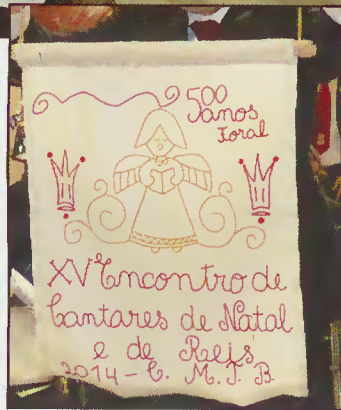 500
anos
Foral
XV Encontro de
Cantares de Natal
e de Reis
2014 - C. M. T. B.